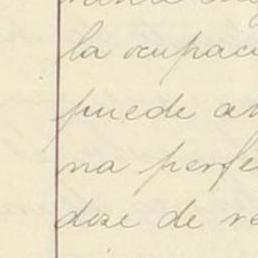 la ocupac
puede a
na perfe
doze de re